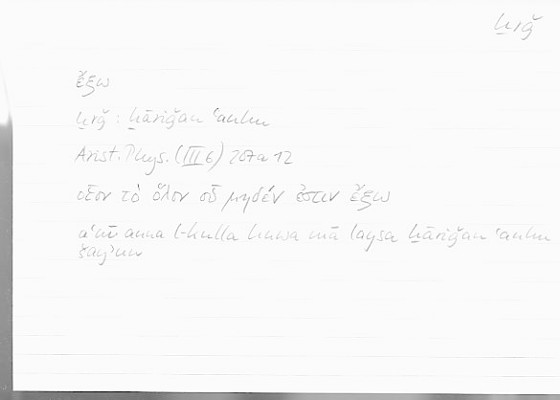 ḫrǧ
ἔξω
ḫrǧ : ḫāriǧan ʿanhu
Arist. Phys. (III 6) 207a12
οἷον τὸ ὅλον οὗ μηδέν ἐστιν ἔξω
aʿnī anna l-kulla huwa mā laysa ḫāriǧan ʿanhu
šayʾun